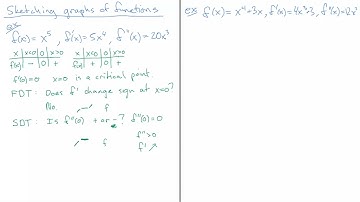 Sketching graphs of functions
ex
f(x) = x⁵, f'(x) = 5x⁴, f''(x) = 20x³
x | x<0 | 0 | x>0 x | x<0 | 0 | x>0
f(x) | - | 0 | + f'(x) | + | 0 | +
f'(0)=0 x=0 is a critical point.
FDT: Does f' change sign at x=0?
No. f
SDT: Is f''(0) + or -? f''(0)=0
f f''>0
f' ↗
ex f(x) = x⁴-3x, f'(x)=4x³-3, f''(x)=12x²